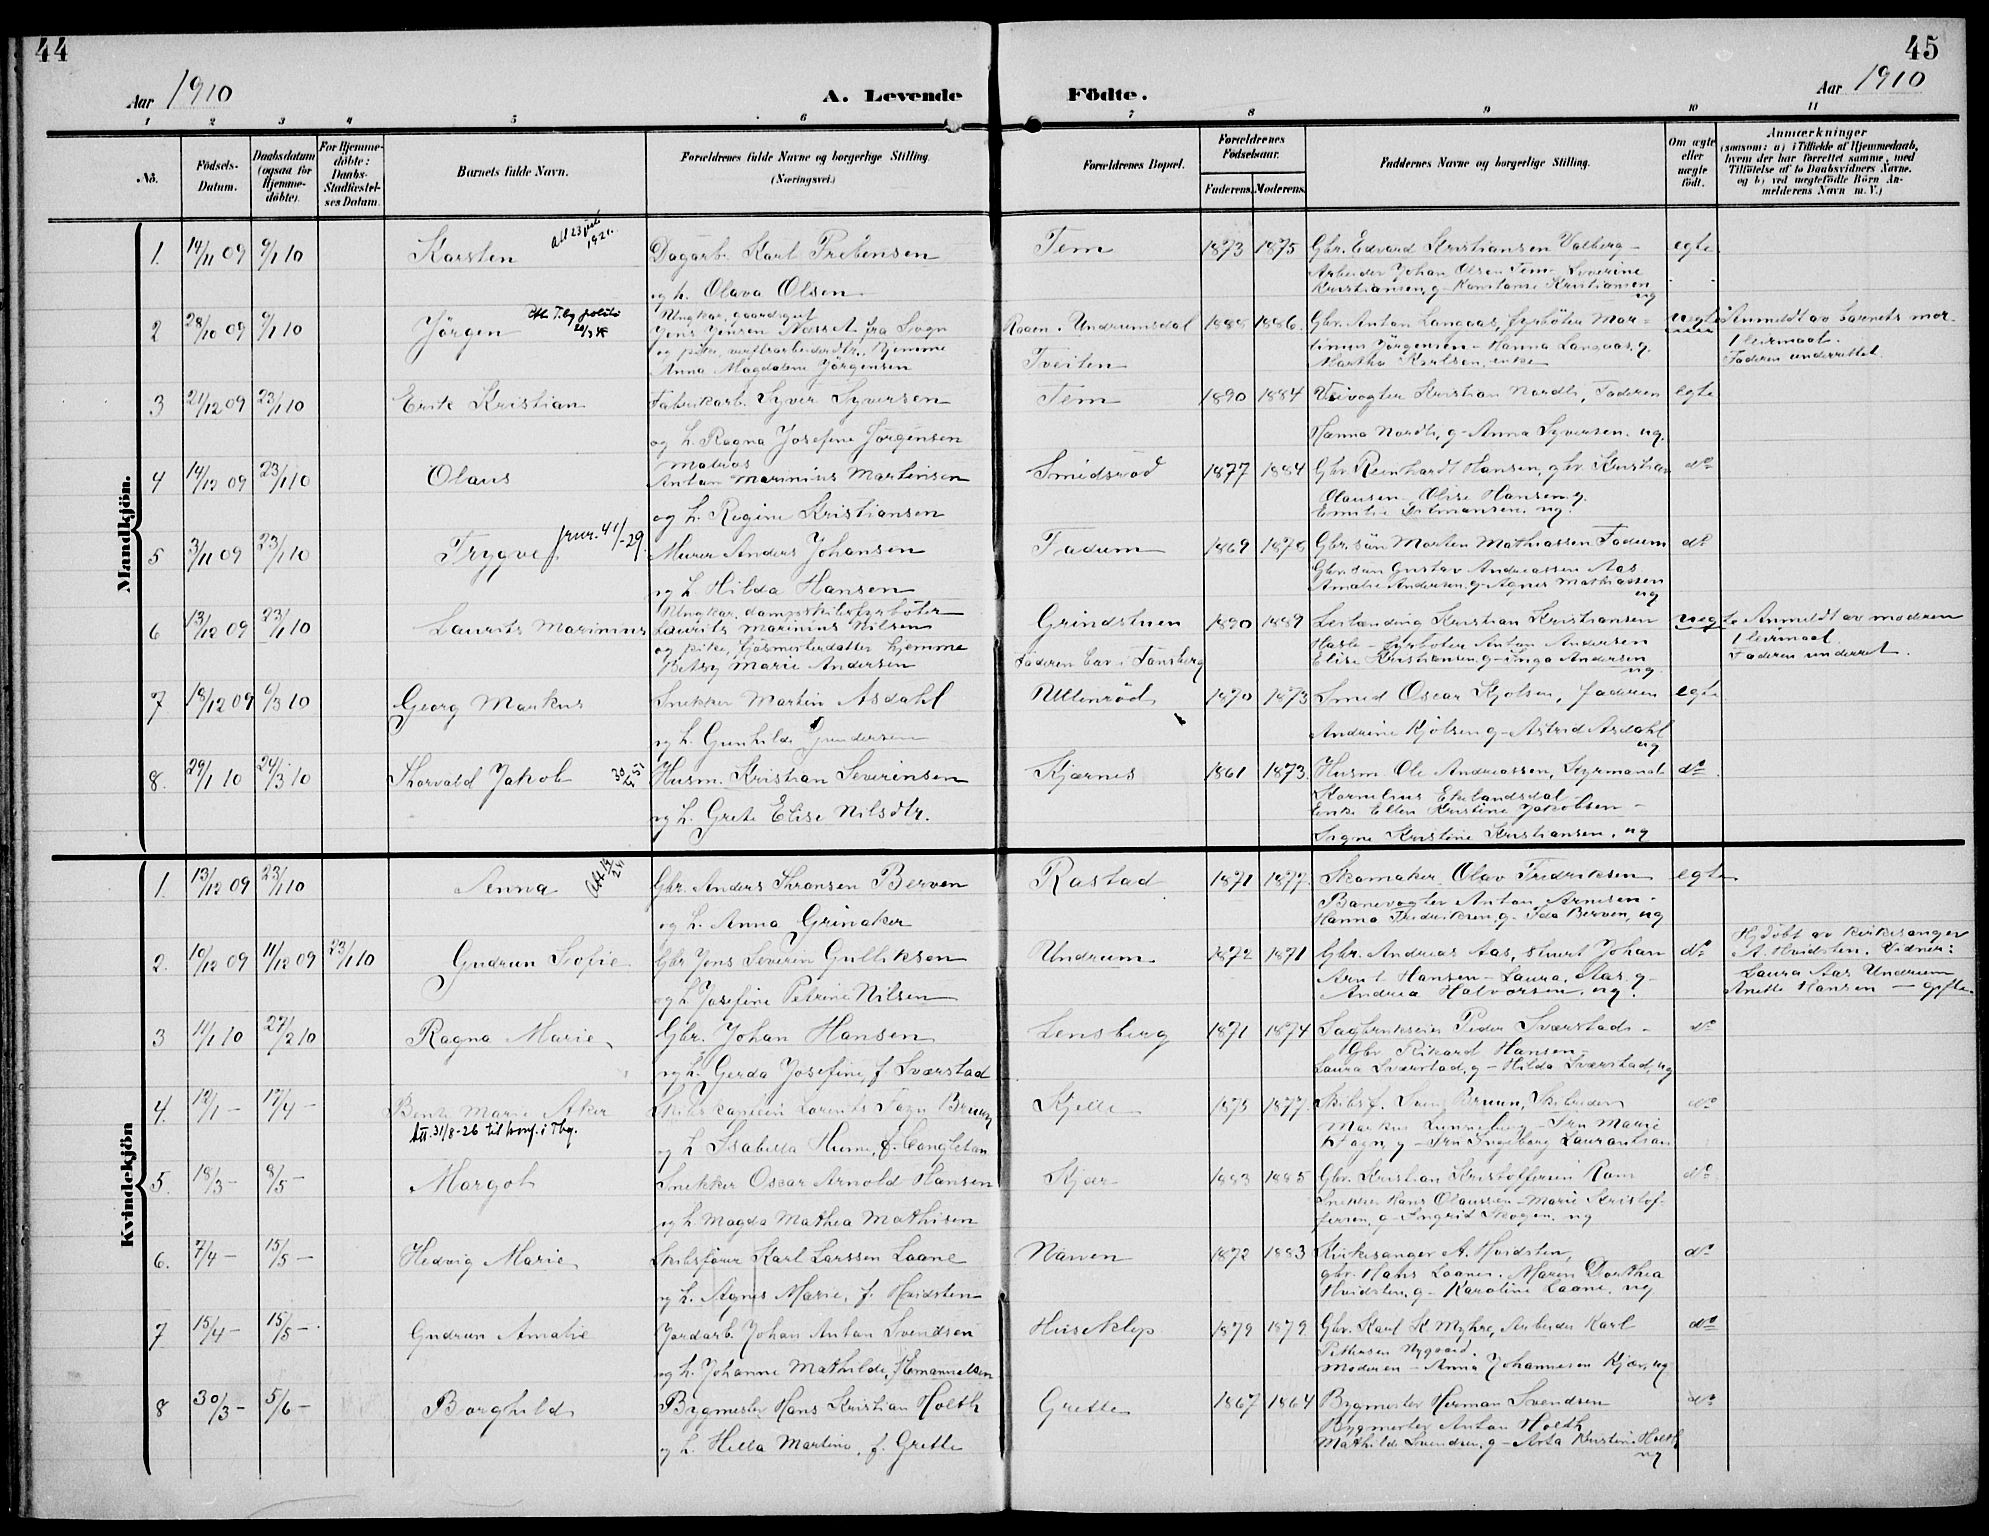 44
45
Aar 1910
A. Levende
Födte.
Aar 1910
1 2 3 4 5 6 7 8 9 10 11
No.
Födsels-Datum.
Daabsdatum (ogsaa for Hjemme-döbte).
For Hjemme-döbte: Daabs-Stadfæstel-ses Datum.
Barnets fulde Navn.
Forældrenes fulde Navne og borgerlige Stilling.
(Næringsvei.)
Forældrenes Bopæl.
Forældrenes Födselsaar.
Faderens. Moderens.
Faddernes Navne og borgerlige Stilling.
Om ægte eller uægte födt.
Anmærkninger
(saasom: a) i Tilfælde af Hjemmedaab,
hvem der har forrettet samme, med
Tilföielse af to Daabsvidners Navne.
og b) ved uægtefödte Börn An-
melderens Navn m. V.)
Mandkjön.
1. 14/11 09 9/1 10 Karsten Dagarb. Karl Prebensen Tem 1873 1875 Gbr. Edvard Kristiansen Valberg - egte
og h. Olava Olsen Arbeider Johan Olsen Tem - Severine
Kristiansen, g - Konstanse Kristiansen
ug
2 28/10 09 9/1 10 Jörgen Ungkar, gaardsgut Raaen i Undrumsdal 1888 1886. Gbr. Anton Langaas, fyrböter Mar- uegte Anmeldt av barnets mor.
Jens Jensen Nasset fra Sogn tinius Jörgensen - Hanna Langaas, g. 1 leirmaal.
og pike, hjemme Tveiten Martha Karlsen, enke Faderen underrettet.
Anna Magdalene Jörgensen
3 21/12 09 23/1 10 Erik Kristian Fabrikarb. Syver Syversen Tem 1890 1884 Veivogter Kristian Nordli, Faderen egte
og h. Ragna Josefine Jörgensen Hanna Nordli, g - Anna Syversen. ug.
4 14/12 09 23/1 10 Olaus Matros Smidsröd 1877 1884 Gbr. Reinhardt Hansen, gbr. Kristian do
Anton Marinius Martinsen Olausen - Olise Hansen g.
og h. Regine Kristiansen Emilie ug.
5 3/11 09 23/1 10 Trygve Murer Anders Johansen Fadum 1869 1878 Gbr.sön Morten Mathiassen Fadum do
og h Hilda Hansen Gbr.sön Gustav Andreassen Aas
Amalie Andersen, g - Agnes Mathiassen
ug
6 13/12 09 23/1 10 Laurits Marinius Ungkar, dampskibsfyrböter Grindstuen 1890 1889 Leilending Kristian Kristiansen uegte Anmeldt av moderen
Laurits Marinius Nilsen Hasle - fyrböter Anton Andersen 1 leirmaal
og pike, hjemme Faderen bor i Tönsberg Elise Kristiansen, g - Inga Andersen Faderen underret.
Betsy Marie Andersen ug.
7 18/12 09 6/3 10 Georg Markus Snekker Martin Asdahl Ullenröd 1870 1873 Smed Oscar Kjolsen, faderen egte
og h. Gunhild Gundersen Andrine Kjölsen g - Astrid Asdahl
ug
8. 29/1 10 24/3 10 Thorvald Jakob Husm. Kristian Severinsen Kjærnes 1861 1873. Husm Ole Andreassen, Styrmand do
og h. Grete Elise Nilsdtr. Kornelius Ekelandsdal -
Enke Ellen Kristine Jakobsen -
Signe Kristine Kristiansen, ug
Kvindekjön
1. 13/12 09 23/1 10 Anna Gbr. Anders Berven Rastad 1871 1877. Skomaker Olav Fredriksen egte
og h. Anna Grinaker Banevogter Anton Arnesen -
Hanna Fredriksen, g. Ida Berven, ug
2. 10/12 09 11/12 09 23/1 10 Gudrun Sofie Gbr Jens Severin Gulliksen Undrum 1872 1871 Gbr. Andreas Aas, stuert Johan do Hjdöbt av kirkesanger
og h. Josefine Petrine Nilsen Arnt Hansen - Laura Aas, g - A. Hvidsten. Vidner:
Andrea Halvorsen, ug. Laura Aas Undrum
Anette Hansen - gifte.
3 11/1 10 27/2 10 Ragna Marie Gbr. Johan Hansen Lensberg 1871 1874 Sagbrukseier Peder Sværstad - do
og h. Gerda Josefine, f Sværstad Gbr Rikard Hansen -
Laura Sværstad, g - Hilda Sværstad, ug
4. 12/1 - 17/4 - Bente Marie Aker Skibskaptein Lorents Fagn Bruun Kjelle 1875 1877. Skibsf. Bruun, Skibsreder do
Att. 31/8-26 til konf. i Tbg. og h Isabella Hume, f. Congletan Markus - Fru Marie
g - Fru Ingeborg Laurantsan
5. 18/3 - 8/5 - Margot Snekker Oscar Arnold Hansen Kjær 1883 1885 Gbr. Kristian Kristoffersen Ram do
og h. Magda Mathea Mathisen Snekker Hans Olaussen - Marie Kristof-
fersen, g - Ingrid Skogen, ug
6. 7/4 - 15/5 - Hedvig Marie Skibsförer Karl Larssen Laane Nauen 1872 1883 Kirkesanger A. Hvidsten, do
og h. Agnes Marie, f. Hvidsten gbr. Hans Laane. Maren Dorthea
Hvidsten, g - Karoline Laane, ug
7 15/4 - 15/5 - Gudrun Amalie Jordarb. Johan Anton Svendsen Huseklep 1879 1879 Gbr. Karl K Myhre, Arbeider Karl do
og h. Johanne Mathilde, f. Emanuelsen Pettersen Nygaard.
Moderen - Anna Johannesen Kjær, ug
8 30/3 - 5/6 - Borghild Bygmester Hans Kristian Holth Grette 1867 1864 Bygmester Herman Svendsen do
og h. Hella Martine, f. Grette Bygmester Anton Holth
Mathilde Svendsen, g - Asta Kristine Holth
ug